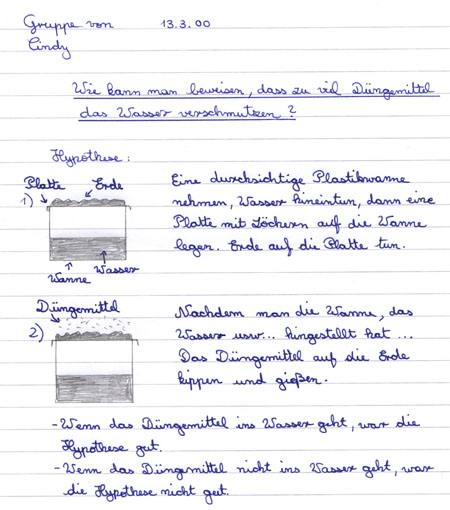 Gruppe von 13.3.00
Cindy
Wie kann man beweisen, dass zu viel Düngemittel
das Wasser verschmutzen?
Hypothese:
Platte Erde
1)
Wanne Wasser
Eine durchsichtige Plastikwanne
nehmen, Wasser hineintun, dann eine
Platte mit Löchern auf die Wanne
legen. Erde auf die Platte tun.
Düngemittel
2)
Nachdem man die Wanne, das
Wasser usw... hingestellt hat ...
Das Düngemittel auf die Erde
kippen und gießen.
- Wenn das Düngemittel ins Wasser geht, war die
Hypothese gut.
- Wenn das Düngemittel nicht ins Wasser geht, war
die Hypothese nicht gut.